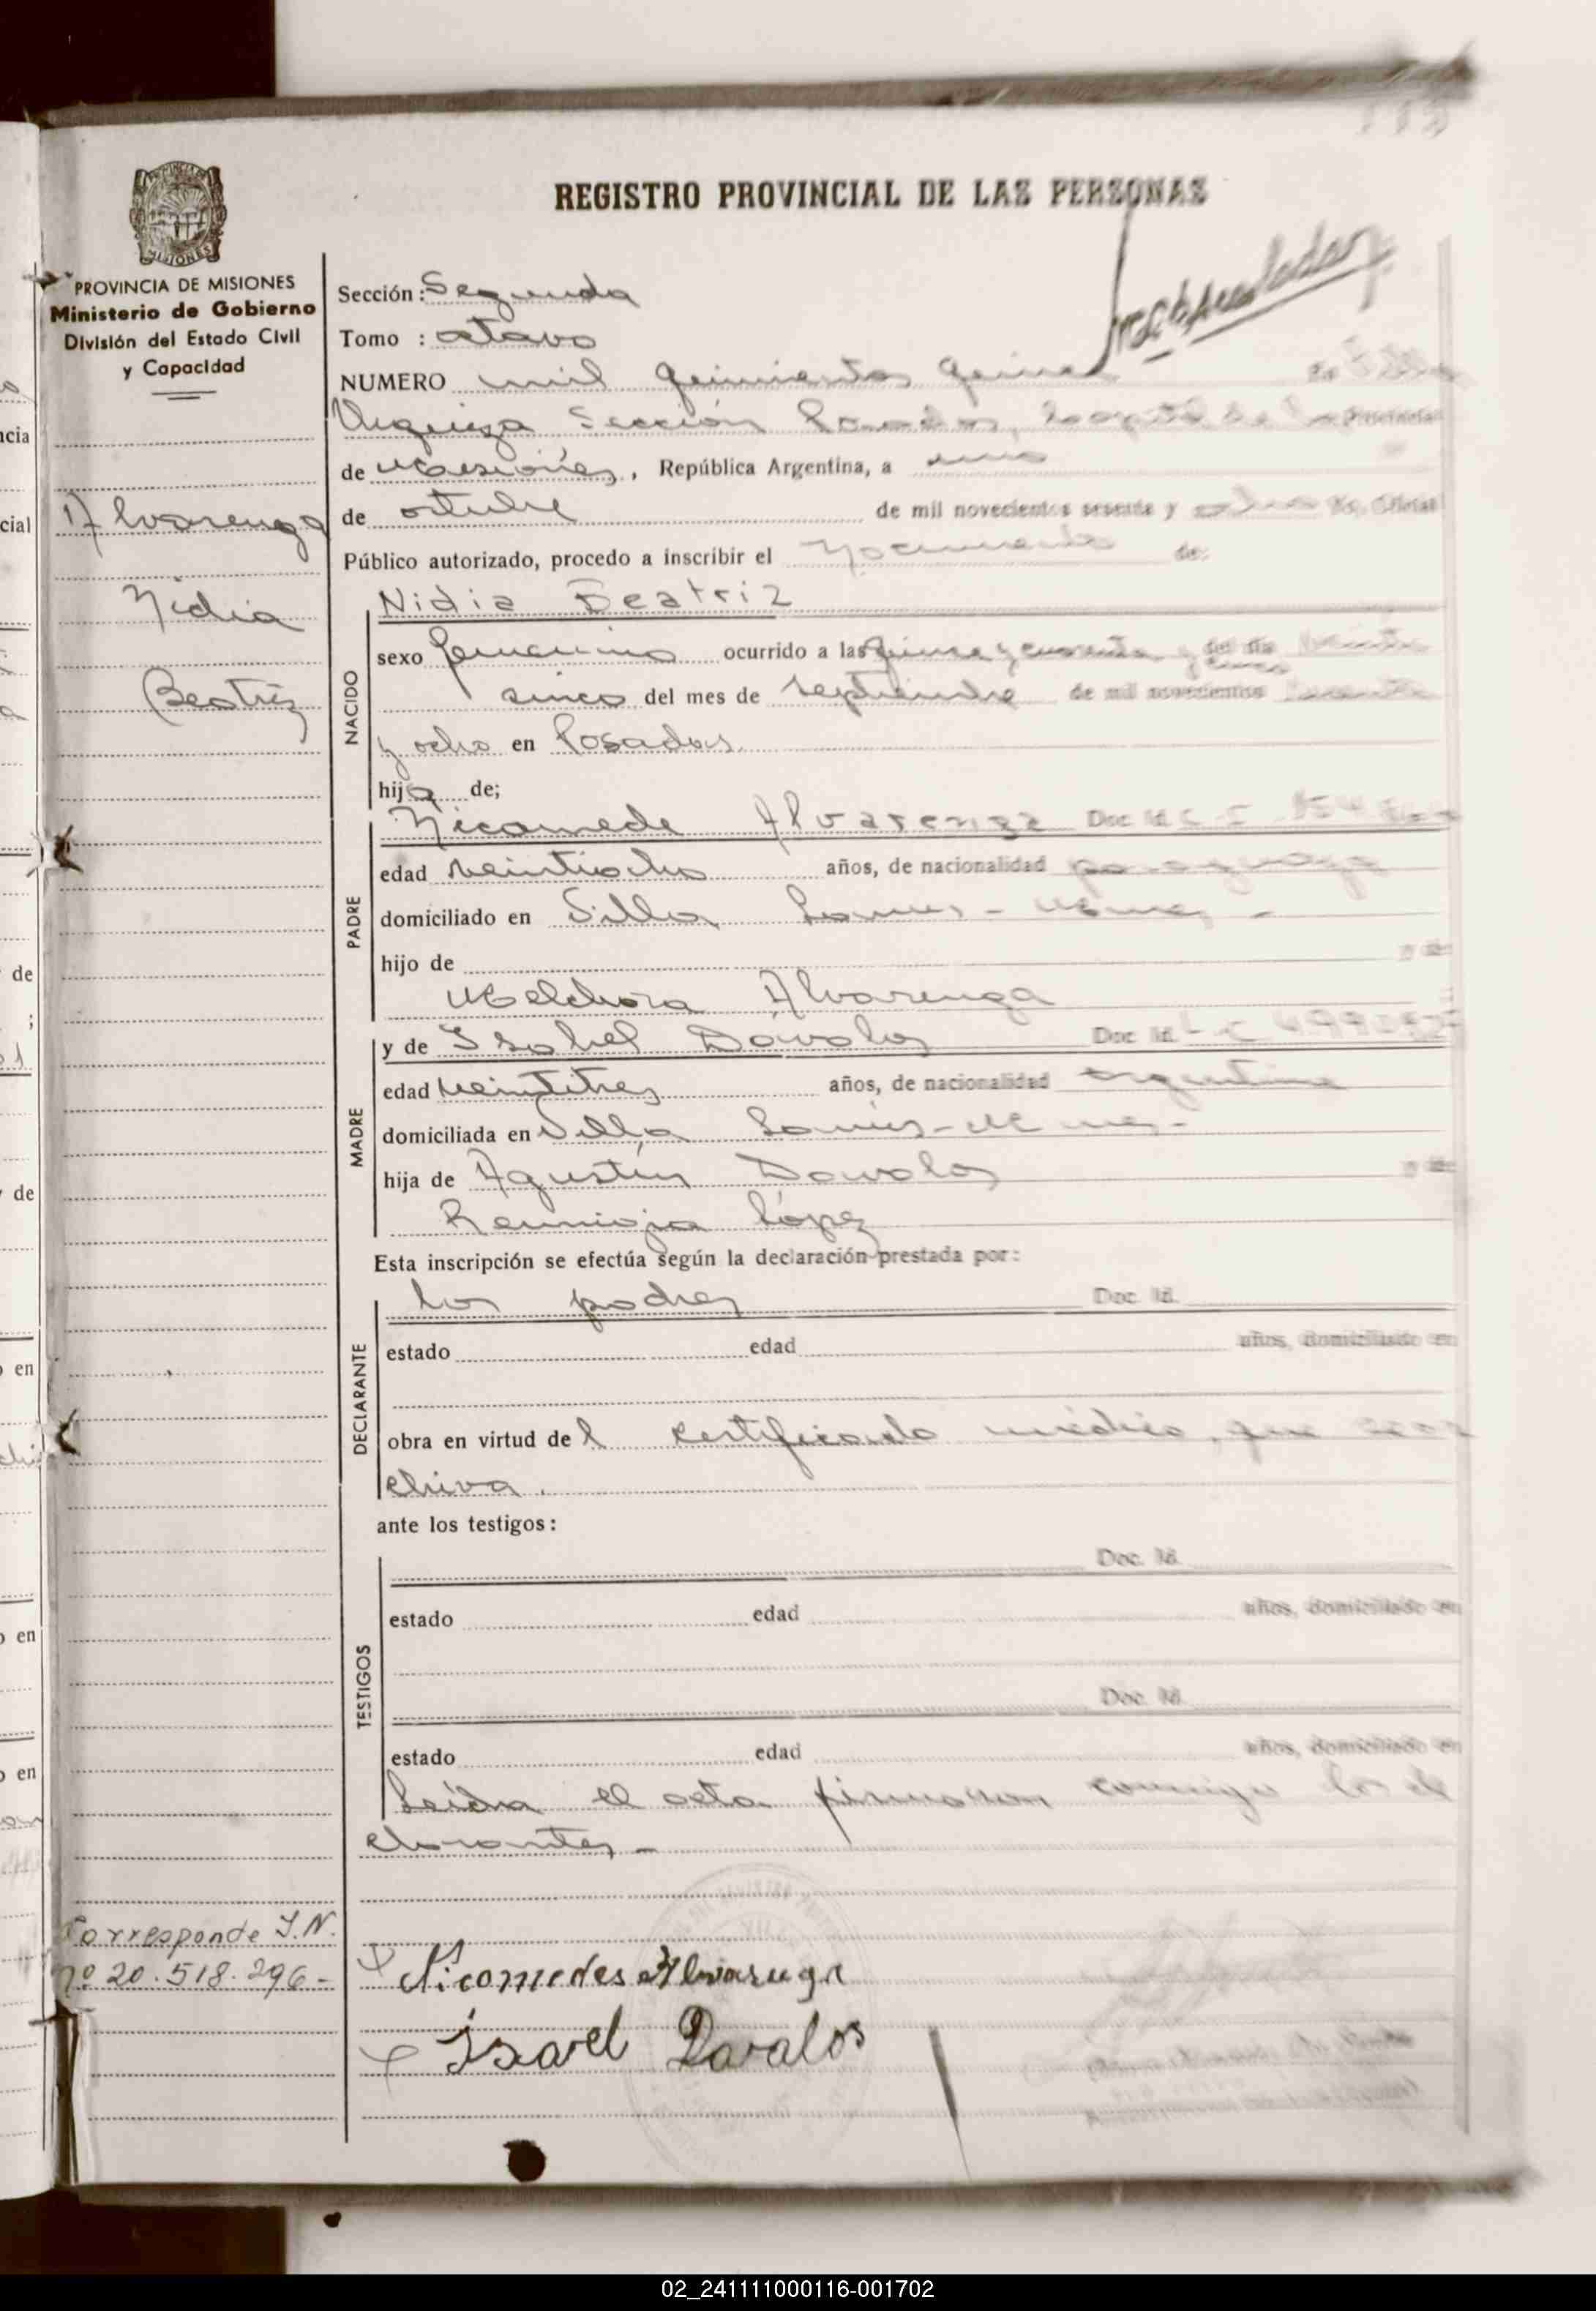 REGISTRO PROVINCIAL DE LAS PERSONAS
PROVINCIA DE MISIONES
Ministerio de Gobierno
División del Estado Civil
y Capacidad
Alvarenga
Nidia
Beatriz
Corresponde I.N.
nº 20.518.296-
Sección: Segunda
Tomo : octavo
NUMERO mil quinientos
Urquiza Sección Posadas,
de Misiones, República Argentina, a uno
de octubre de mil novecientos sesenta y ocho Yo, Oficial
Público autorizado, procedo a inscribir el nacimiento de:
NACIDO
Nidia Beatriz
sexo femenino ocurrido a las quince y cuarenta y cinco del día veinti
cinco del mes de septiembre de mil novecientos sesenta
y ocho en Posadas
hija de;
PADRE
Nicomede Alvarenga Doc Id. C I
edad veintiocho años, de nacionalidad paraguaya
domiciliado en Villa Lanus - Mnes -
hijo de y de
Melchora Alvarenga
MADRE
y de Isabel Dávalos Doc Id. L C
edad veintitres años, de nacionalidad argentina
domiciliada en Villa Lanus - Mnes -
hija de Agustin Davalos y de
Remigia López
Esta inscripción se efectúa según la declaración prestada por:
DECLARANTE
los padres Doc. Id.
estado edad años, domiciliado en
obra en virtud del certificado médico, que se ar
chiva.
ante los testigos:
TESTIGOS
Doc. Id.
estado edad años, domiciliado en
Doc. Id.
estado edad años, domiciliado en
Leída el acta firmaron conmigo los de
clarantes -
Nicomedes Alvaruga
Isavel Davalos
02_241111000116-001702